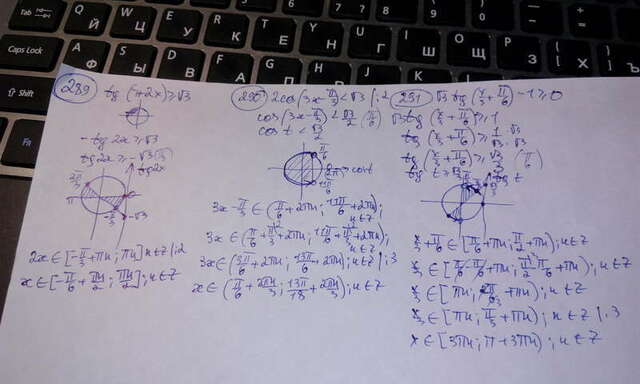 Tab
Q Й
W Ц
E У
R К
T Е
Y Н
U Г
I Ш
O Щ
P З
Caps Lock
A Ф
S Ы
D В
F А
G П
H Р
J О
K Л
L Д
Shift
Z Я
289
tg (π+2x) ≥ √3
- tg 2x ≥ √3
tg 2x
2π/3
π
-π/3
-√3
2x ∈ [-π/3 + πn; πn] n∈Z |:2
x ∈ [-π/6 + πn/2; πn/2]; n∈Z
290
2cos(3x-π/3) < √3 |:2
cos(3x-π/3) < √3/2 (π/6)
cos t < √3/2
π/6
cos t
11π/6
3x-π/3 ∈ (π/6+2πn; 11π/6+2πn);
n∈Z
3x ∈ (π/6+π/3+2πn; 11π/6+π/3+2πn);
n∈Z
3x ∈ (3π/6+2πn; 13π/6+2πn); n∈Z |:3
x ∈ (π/6+2πn/3; 13π/18+2πn/3); n∈Z
291
√3 tg(x/3+π/6) -1 ≥ 0
√3 tg(x/3+π/6) ≥ 1
tg(x/3+π/6) ≥ 1·√3/√3·√3
tg(x/3+π/6) ≥ √3/3 (π/6)
tg t ≥ √3/3
tg t
x/3+π/6 ∈ [π/6+πn; π/2+πn); n∈Z
x/3 ∈ [π/6-π/6+πn; π/2-π/6+πn); n∈Z
x/3 ∈ [πn; 2π/6+πn); n∈Z
x/3 ∈ [πn; π/3+πn); n∈Z |·3
x ∈ [3πn; π+3πn); n∈Z